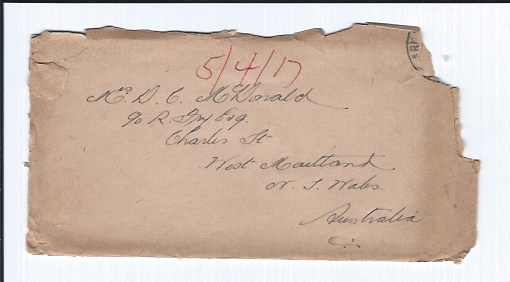 5/4/17
Mrs D. C. McDonald
c/o R. Fry Esq.
Charles St
West Maitland
N. S. Wales
Australia